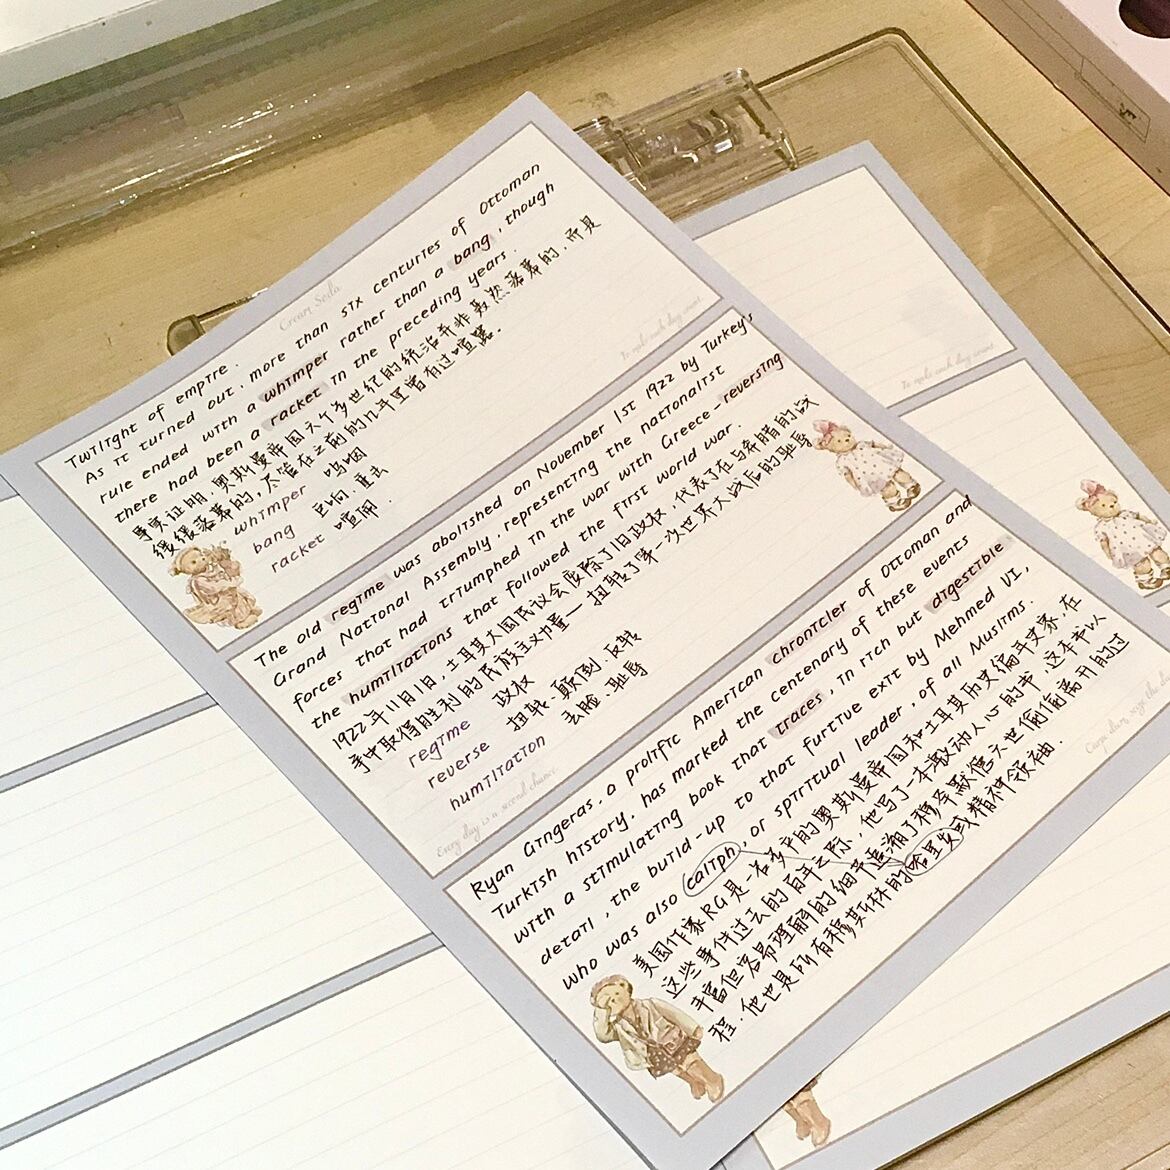 Cream Soda
Twilight of empire.
As it turned out, more than six centuries of Ottoman
rule ended with a whimper rather than a bang, though
there had been a racket in the preceding years.
事实证明,奥斯曼帝国六个多世纪的统治并非轰然落幕的,而是
缓缓落幕的,尽管在之前的几年里曾有过喧嚣.
whimper 呜咽
bang 巨响.重击
racket 喧闹
to make each day count
The old regime was abolished on November 1st 1922 by Turkey's
Grand National Assembly, representing the nationalist
forces that had triumphed in the war with Greece-reversing
the humiliations that followed the first world war.
1922年11月1日,土耳其大国民议会废除了旧政权,代表了在与希腊的战
争中取得胜利的民族主义力量一扭转了第一次世界大战后的耻辱
regime 政权
reverse 扭转.颠倒.反转
humiliation 丢脸.耻辱
Every day is a second chance
Ryan Gingeras, a prolific American chronicler of Ottoman and
Turkish history, has marked the centenary of these events
with a stimulating book that traces, in rich but digestible
detail, the build-up to that furtive exit by Mehmed VI,
who was also caliph, or spiritual leader, of all Muslims.
美国作家RG是一名多产的奥斯曼帝国和土耳其历史编年史家.在
这些事件过去的百年之际,他写了一本激动人心的书.这本书以
丰富但容易理解的细节追溯了穆罕默德六世偷偷离开的过
程.他也是所有穆斯林的哈里发或精神领袖.
Carpe diem, seize the day
to make each day count